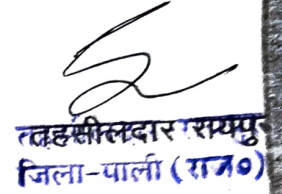 तहसीलदार रायपुर
जिला-पाली (राज०)